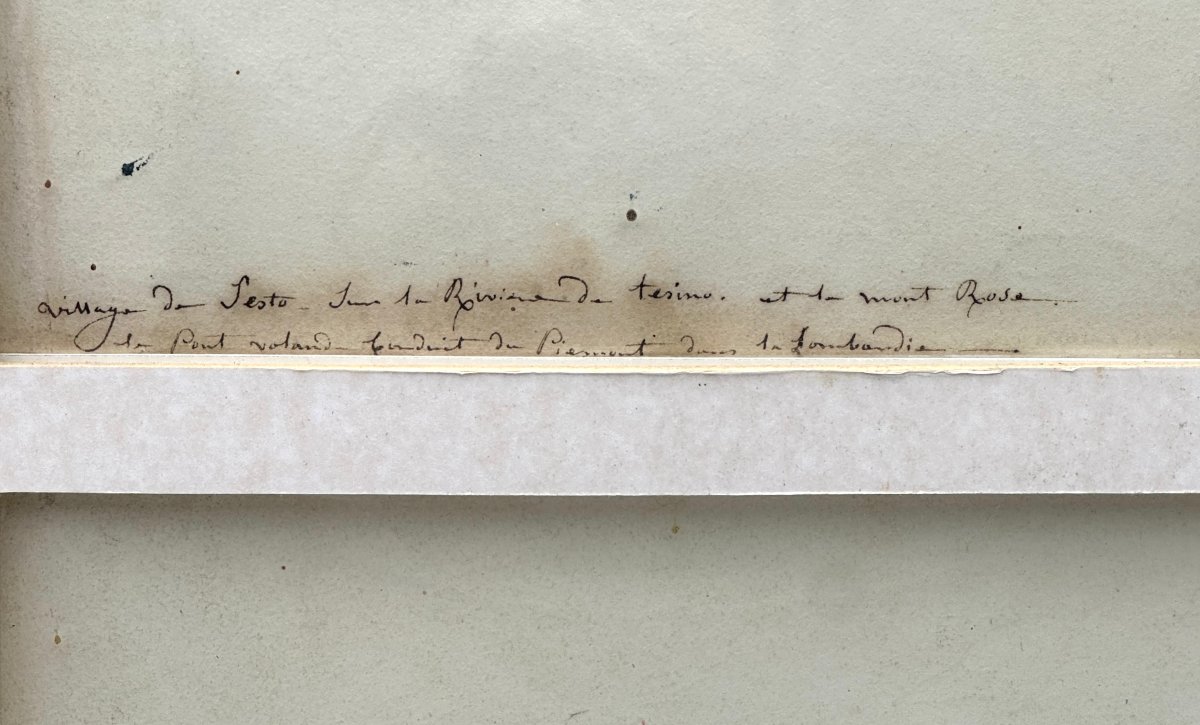 village de Sesto Sur la Riviere de tesino. et le mont Rose
le Pont voland Conduit du Piemont dans la Lombardie